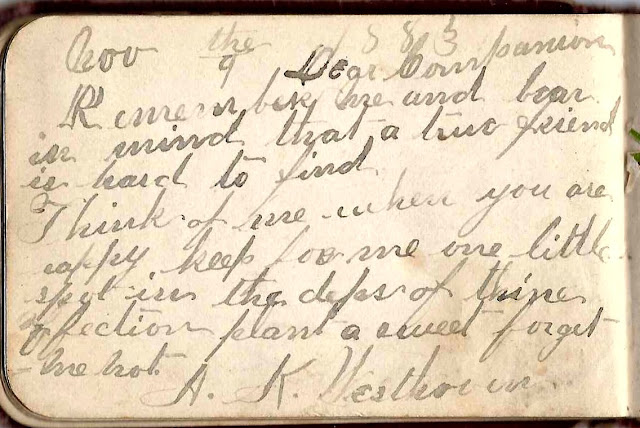 Nov the 9 1883
Dear Companion
Remember me and bear
in mind that a true friend
is hard to find
Think of me when you are
happy keep for me one little
spot in the deps of thine
affection plant a sweet forget
-me not.
A. K. Westhoven